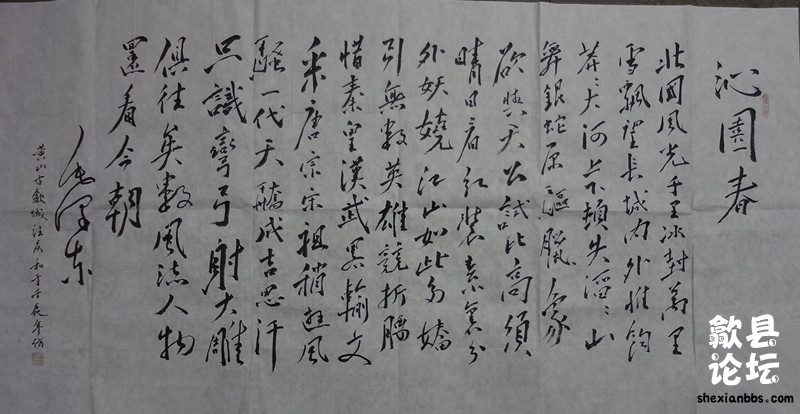 沁園春
北國風光千里冰封萬里
雪飄望長城內外惟餘
莽〻大河上下頓失滔〻山
舞銀蛇原驅臘象
欲與天公試比高須
晴日看紅裝素裹分
外妖嬈江山如此多嬌
引無數英雄競折腰
惜秦皇漢武畧輸文
采唐宗宋祖稍遜風
騷一代天驕成吉思汗
只識彎弓射大雕
俱往矣數風流人物
還看今朝
毛澤东
黄山古歙城汪和于壬辰年仿
歙县
论坛
shexianbbs.com